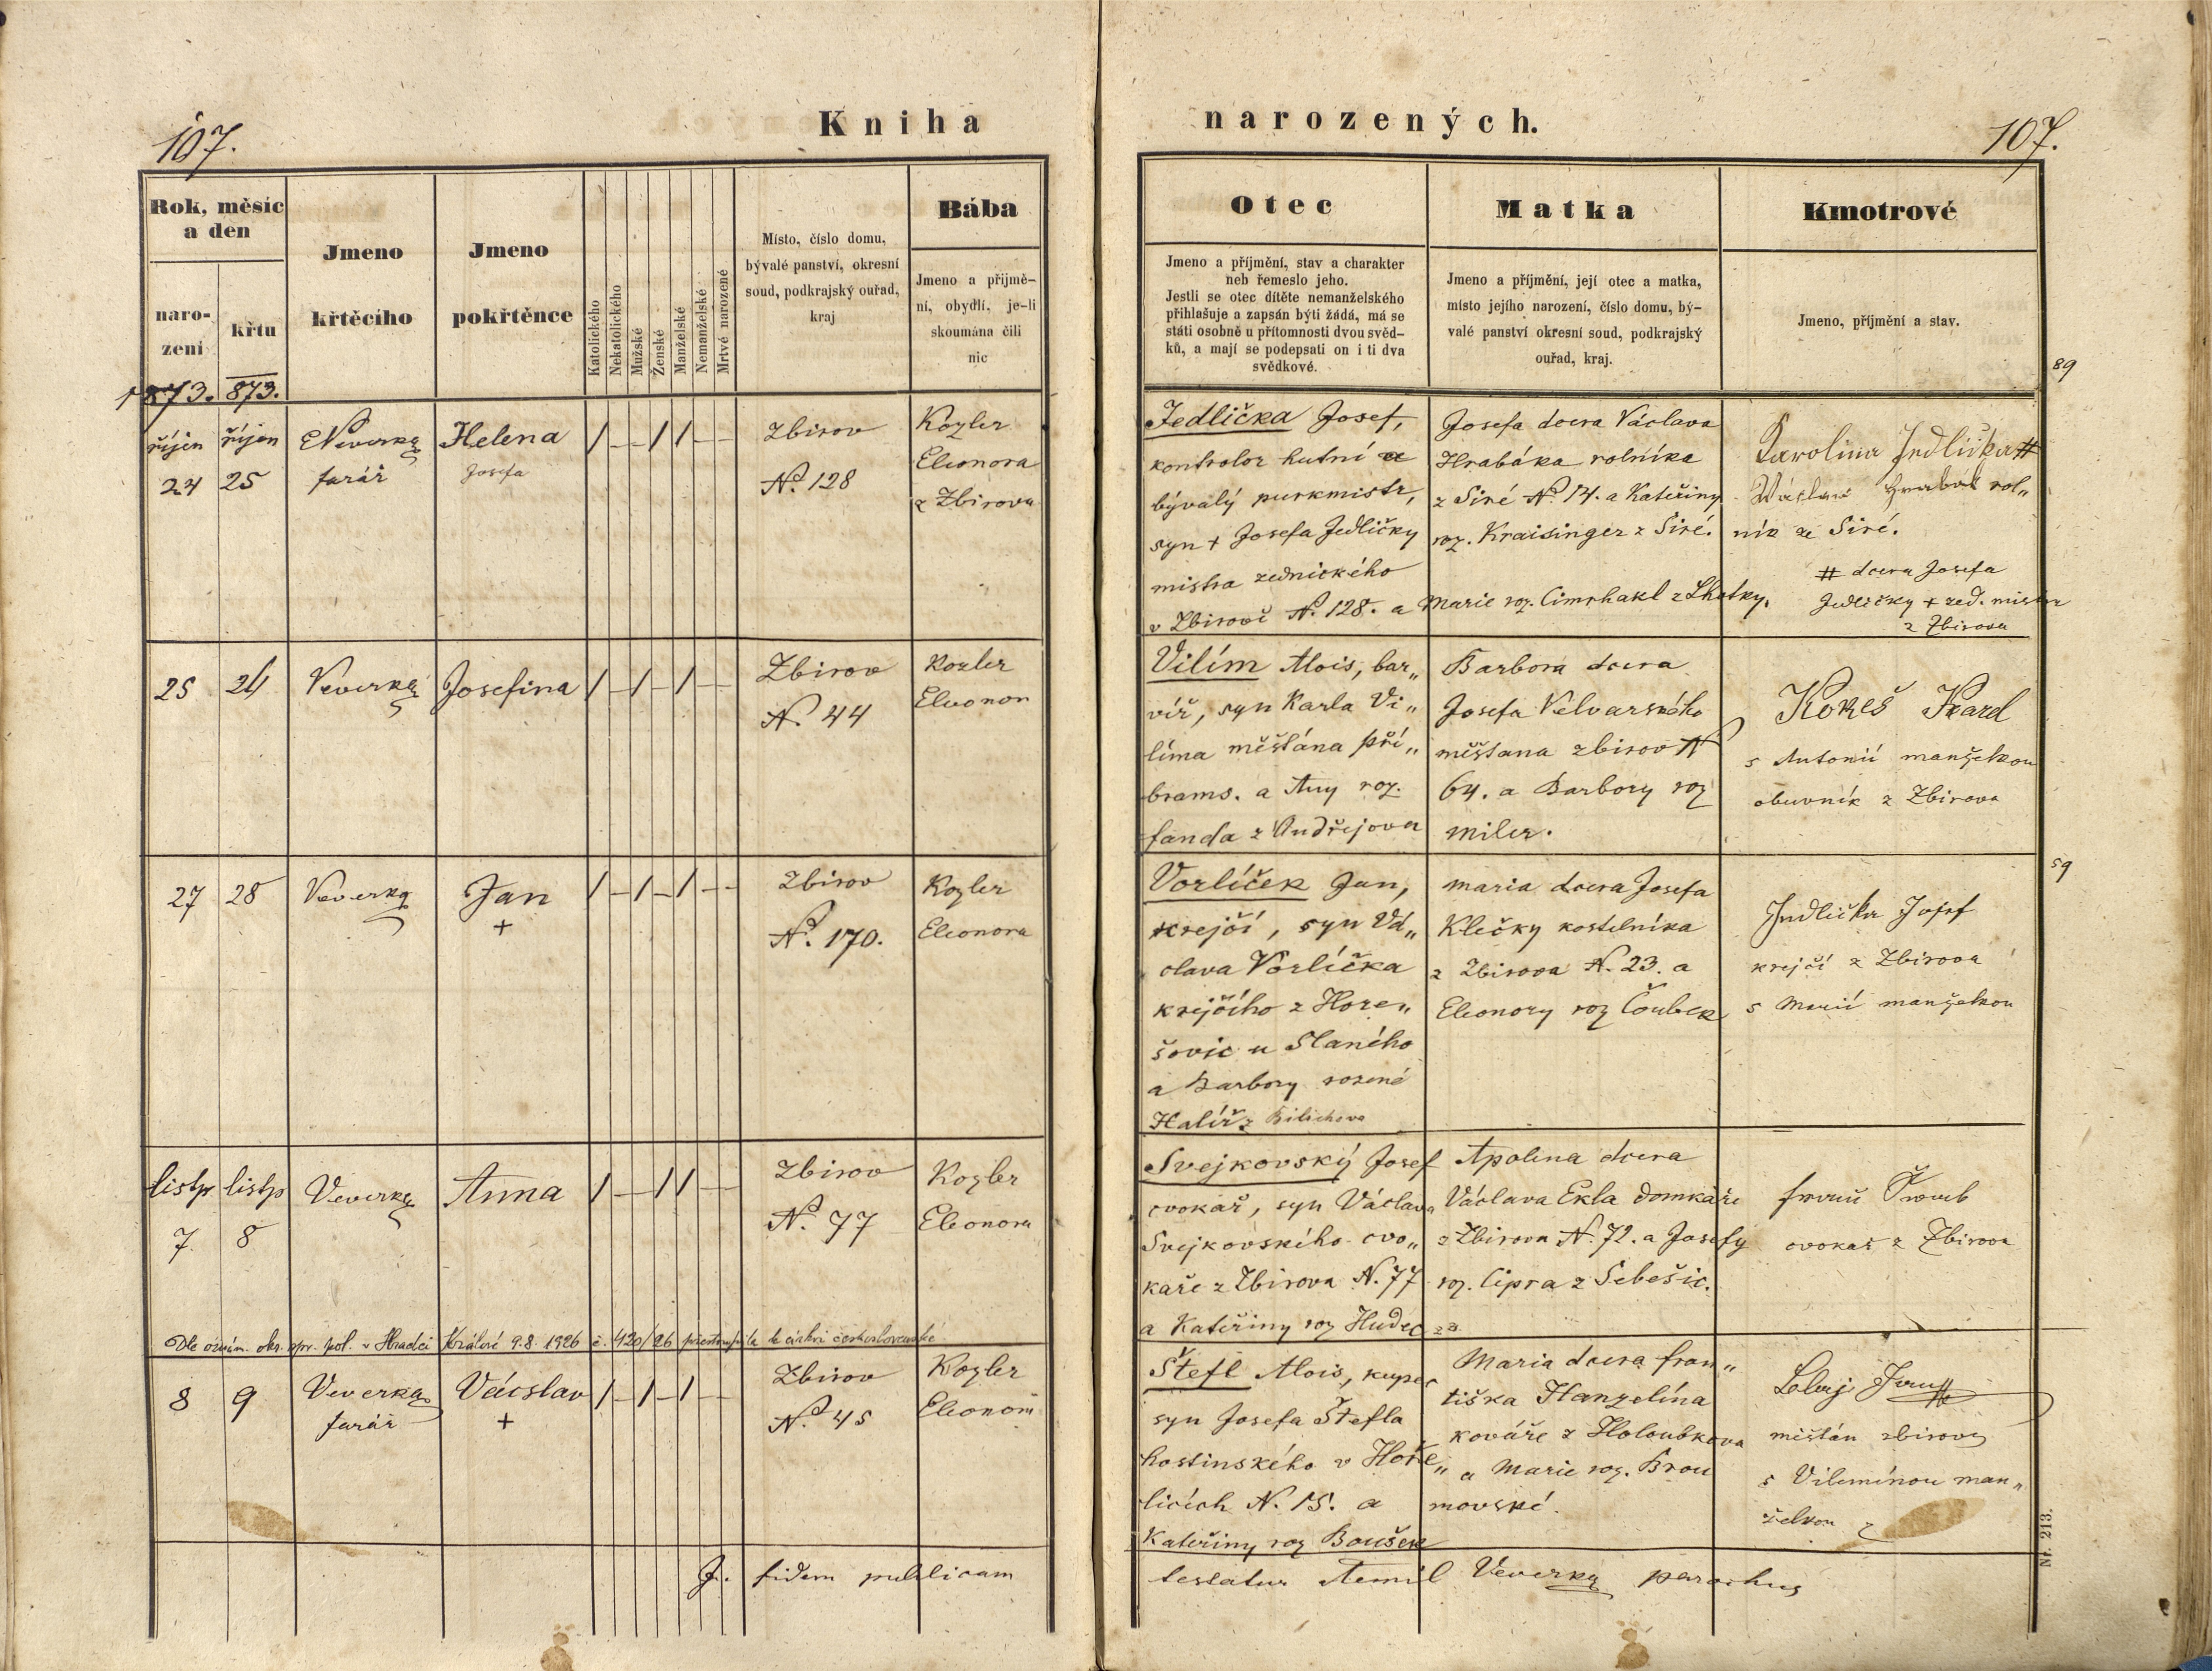 107.
Kniha
narozených.
107.
Rok, měsíc
a den
naro-
zení
křtu
Jmeno
křtěcího
Jmeno
pokřtěnce
Katolického
Nekatolického
Mužské
Ženské
Manželské
Nemanželské
Mrtvé narozené
Místo, číslo domu,
bývalé panství, okresní
soud, podkrajský ouřad,
kraj
Bába
Jmeno a přijmě-
ní, obydlí, je-li
skoumána čili
nic
Otec
Jmeno a příjmění, stav a charakter
neb řemeslo jeho.
Jestli se otec dítěte nemanželského
přihlašuje a zapsán býti žádá, má se
státi osobně u přítomnosti dvou svěd-
ků, a mají se podepsati on i ti dva
svědkové.
Matka
Jmeno a příjmění, její otec a matka,
místo jejího narození, číslo domu, bý-
valé panství okresní soud, podkrajský
ouřad, kraj.
Kmotrové
Jmeno, příjmění a stav.
1873. 873.
říjen
24
říjen
25
Veverka
farář
Helena
Josefa
/ – – / / – –
Zbirov
No. 128
Kozler
Eleonora
z Zbirova
Jedlička Josef,
kontrolor hutní a
bývalý purkmistr,
syn + Josefa Jedličky
mistra zednického
v Zbirově No. 128. a Marie roz. Cimrhakl z Lhotky.
Josefa dcera Václava
Hrabáka rolníka
z Siré No. 14. a Kateřiny
roz. Kraisinger z Siré.
89
Karolina Jedlička #
Václav Hrabák rol„
ník ze Siré.
# dcera Josefa
Jedličky + zed. mistra
z Zbirova
25
24
Veverka
Josefina
/ – / – / – –
Zbirov
N. 44
Kozler
Eleonor
Vilím Alois, bar„
víř, syn Karla Vi„
líma měšťána pří„
brams. a Any roz.
fanda z Ondřejova
Barbora dcera
Josefa Velvarského
měšťana zbirov N
64. a Barbory roz
miler.
Kokeš Karel
s Antonií manželkou
obuvník z Zbirova
27
28
Veverka
Jan
+
/ – / – / – –
Zbirov
No. 170.
Kozler
Eleonora
Vorlíček Jan,
krejčí, syn Vá„
clava Vorlíčka
krejčího z Hore„
šovic u Slaného
a Barbory rozené
Halíř z Bilichova
maria dcera Josefa
Klečky kostelníka
z Zbirova N. 23. a
Eleonory roz Čoubek
59
Jedlička Josef
krejčí z Zbirova
s Marií manželkou
listp
7.
listp
8
Veverka
Anna
/ – / / – –
Zbirov
No. 77
Kozler
Eleonora
Svejkovský Josef
cvokař, syn Václava
Svejkovského cvo„
kaře z Zbirova N. 77
a Kateřiny roz Hudec
Apolena dcera
Václava Ekla domkáře
z Zbirova N. 72. a Josefy
roz. Cipra z Sebešic.
cvokař z Zbirova
Dle oznám. okr. spr. pol. v Hradci Králové 9.8. 1926 č. 420/26 přestoupila k církvi československé
8
9
Veverka
farář
Vácslav
+
/ – / – / – –
Zbirov
No. 45
Kozler
Eleonora
Štefl Alois, kupec
syn Josefa Štefla
hostinského v Hoře„
licích N. 15. a
Kateřiny roz Boušek
Maria dcera fran„
tiška Hanzelína
kováře z Holoubkova
a Marie roz. Brou
movské.
měšťán zbirov
s Vilemínou man„
želkou
Nr. 213.
J. fidem publicam
testatur Aemil Veverka parochus